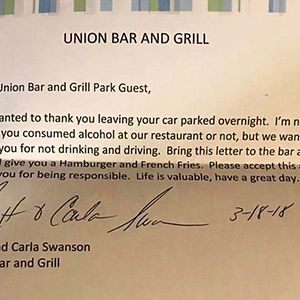 UNION BAR AND GRILL
Union Bar and Grill Park Guest,
anted to thank you leaving your car parked overnight. I'm n
you consumed alcohol at our restaurant or not, but we wan
you for not drinking and driving. Bring this letter to the bar a
l give you a Hamburger and French Fries. Please accept this a
you for being responsible. Life is valuable, have a great day.
& Carla Swanson 3-18-18
nd Carla Swanson
Bar and Grill